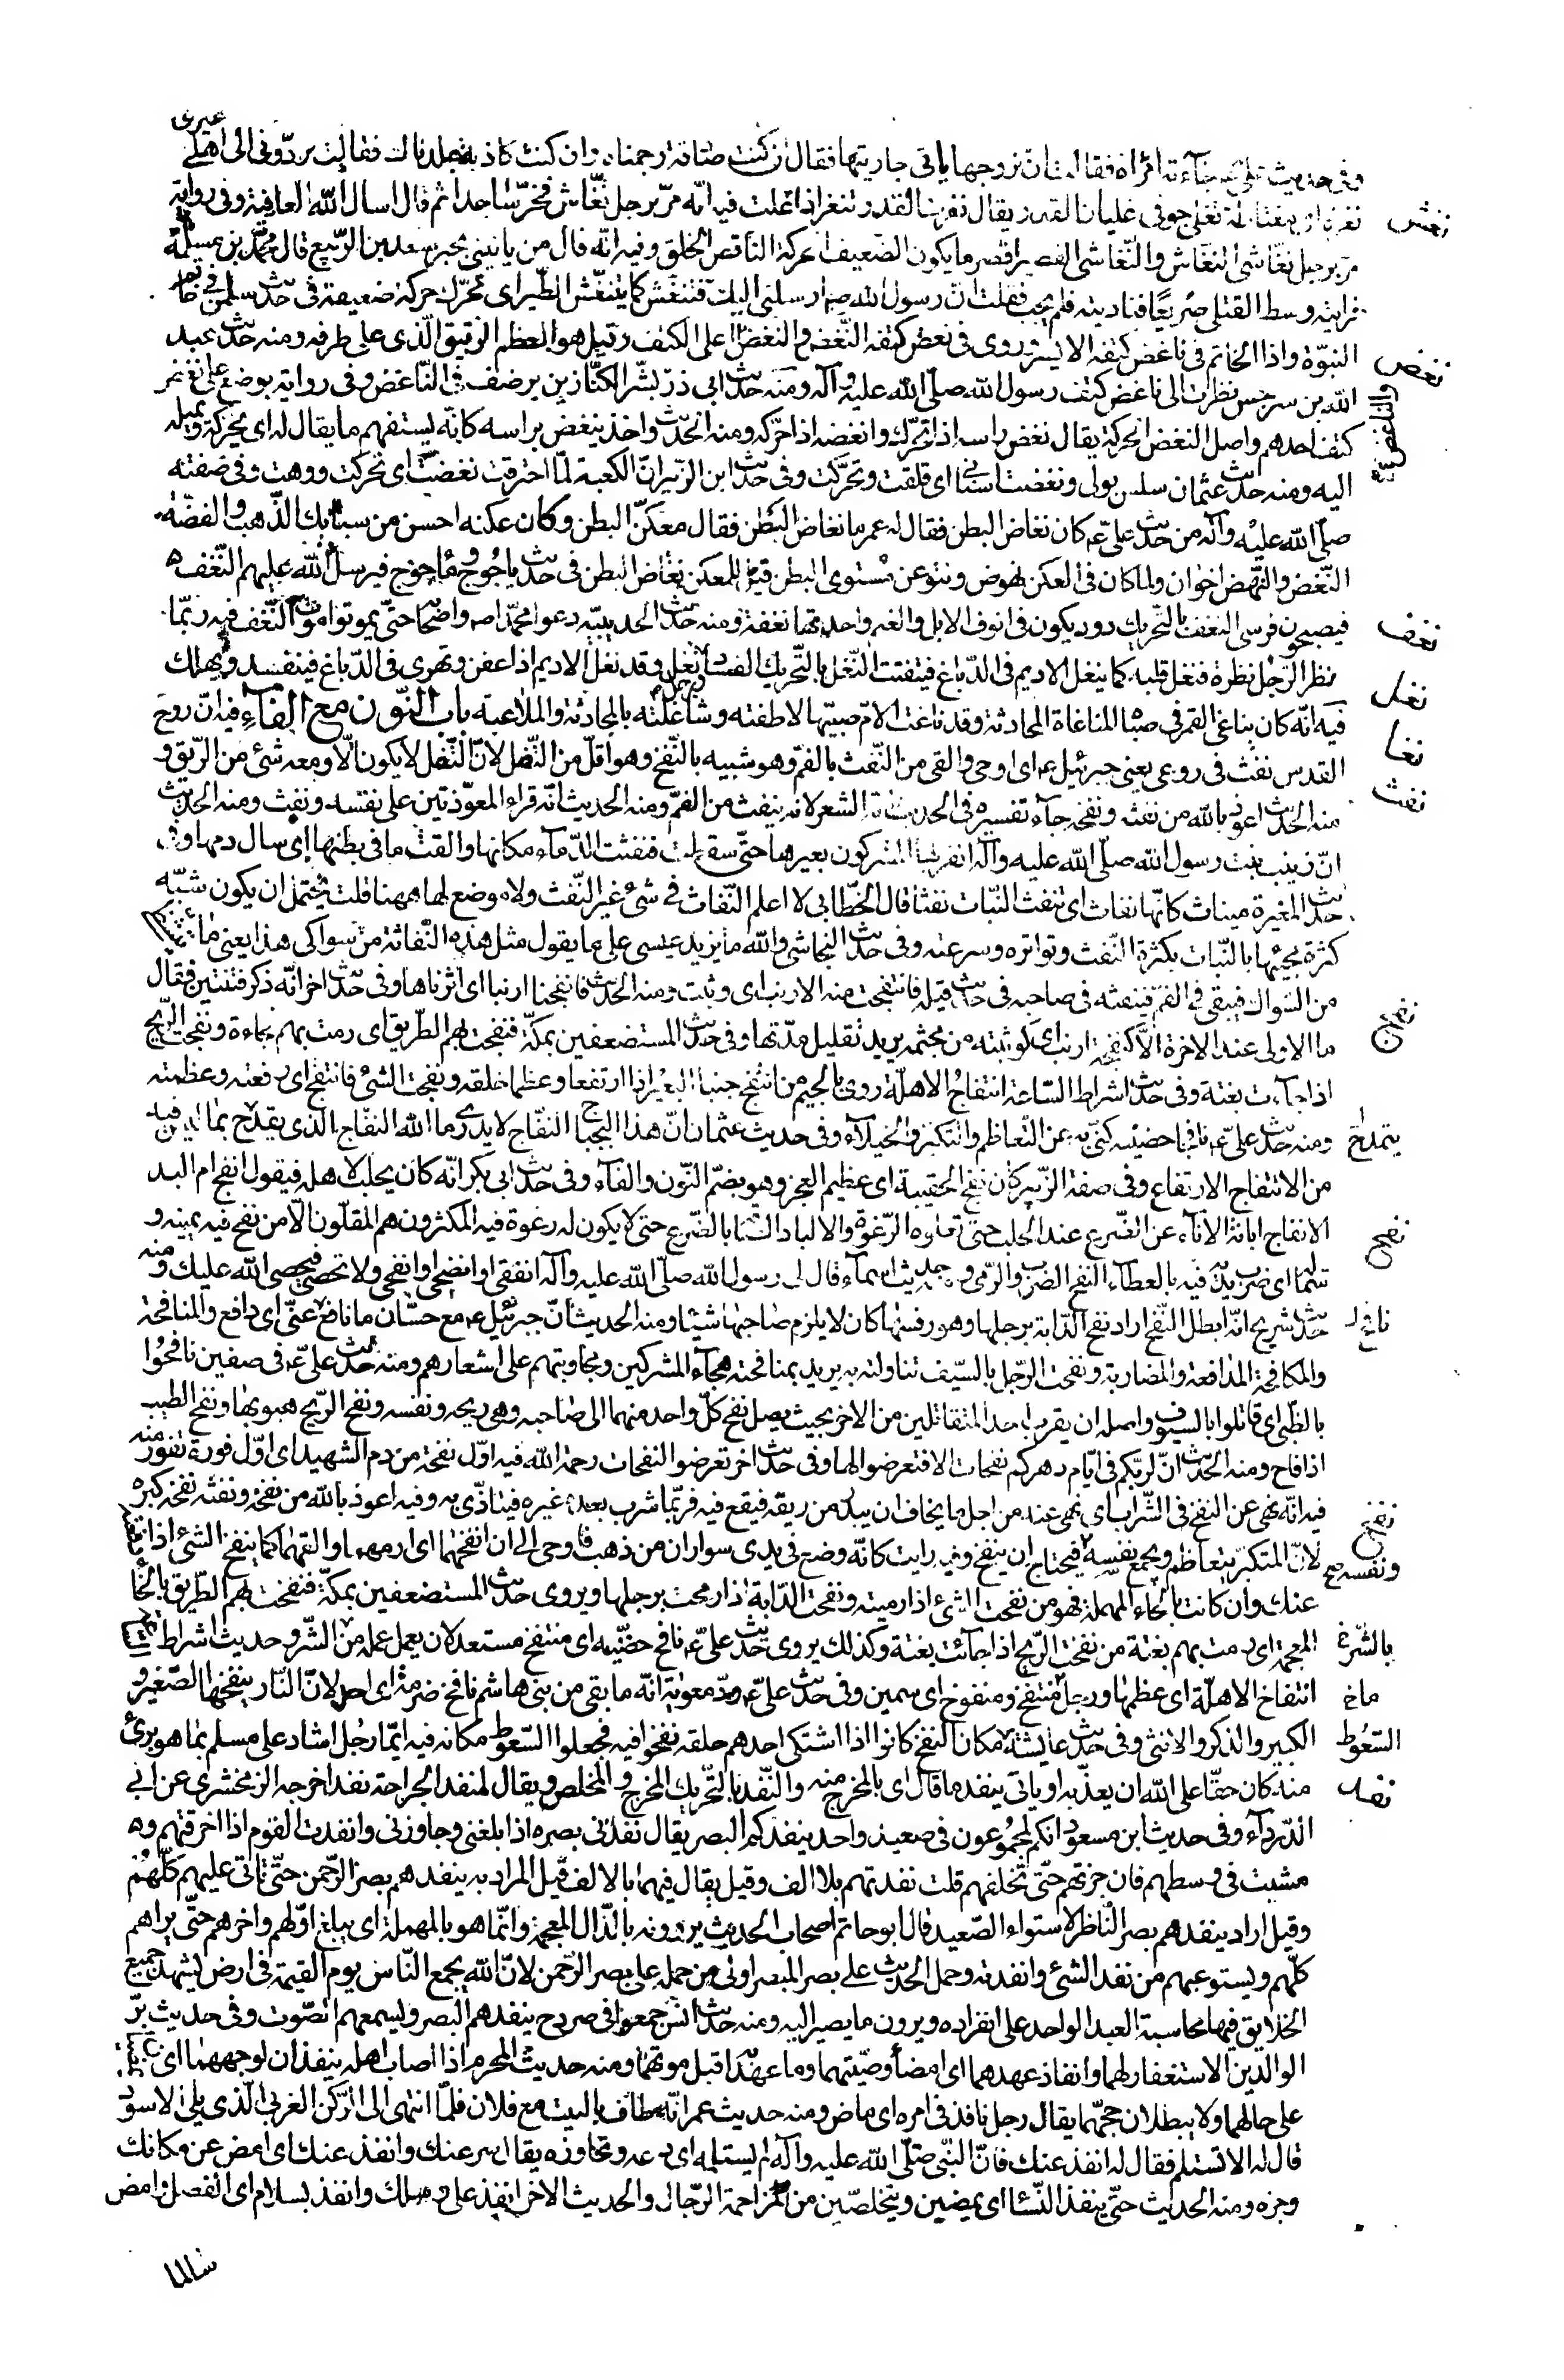 عيرى
وفى حديث على عم جآءته امراة فقالت ان زوجها ياتى جاريتها فقال ان كنت صادقة رجمناه وان كنت كاذبة جلدناك فقالت ردّونى الى اهلى
نغرة اى مغتاظة تغلى جوفى غليان القدر يقال نغرت القدر تنغر اذا غلت فيه انّه مرّ برجل نغّاش فخرّ ساجدا ثم قال اسال الله العافية وفى رواية
نغش
مرّ برجل نغّاشى النغاش والنّغاشى القصير اقصر ما يكون الضعيف الحركة الناقص الخلق وفيه انّه قال من ياتينى بخبر سعد بن الرّبيع قال محمّد بن مسلمة
فرايته وسط القتلى صريعًا فناديته فلم يجب فقلت انّ رسول الله صم ارسلنى اليك فتنغّش كما يتنغّش الطّير اى تحرّك حركة ضعيفة فى حديث سلمان فى خاتم
النبوّة واذا الخاتم فى ناغض كتفه الايسر وروى فى نغض كتفه النّغض والنغض اعلى الكتف وقيل هو العظم الرّقيق الّذى على طرفه ومنه حديث عبد
نغض
الله بن سرجس نظرت الى ناغض كتف رسول الله صلّى الله عليه وآله ومنه حديث ابى ذرّ بشّر الكنّازين برضف فى النّاغض وفى رواية يوضع على نغض
كتف احدهم واصل النغض الحركة يقال نغض راسه اذا تحرّك وانغضه اذا حرّكه ومنه الحديث واخذ ينغض براسه كانّه يستفهم ما يقال له اى يحرّكه ويميله
اليه ومنه حديث عثمان سلس بولى ونغضت اسنانى اى قلقت وتحرّكت وفى حديث ابن الزّبير انّ الكعبة لمّا احترقت نغضت اى تحركت ووهت وفى صفته
صلّى الله عليه وآله من حديث علىّ عم كان نغاض البطن فقال له عمر ما نغاض البطن فقال معكّن البطن وكان عكنه احسن من سبائك الذّهب والفضّة
النّغض والنّهض اخوان ولما كان فى العكن نهوض ونتو عن مستوى البطن قيل للمعكن نغاض البطن فى حديث ياجوج وماجوج فيرسل الله عليهم النّغف
فيصبحون فرسى النغف بالتّحريك دود يكون فى انوف الابل والغنم واحدتها نغفة ومنه حديث الحديبيّة دعوا محمّدا صم واصحابه حتّى يموتوا موت النّغف فيه ربّما
نغف
نظر الرّجل نظرة فنغل قلبه كما ينغل الاديم فى الدّباغ فيتفتت النّغل بالتّحريك الفساد ورجل نغل وقد نغل الاديم اذا عفن وتهرى فى الدّباغ فيفسد ويهلك
نغل
فيه انّه كان يناغى القمر فى صباه المناغاة المحادثة وقد ناغت الامّ صبيّها لاطفته وشاغلته بالمحادثة والملاعبة باب النّون مع الفاء فيه انّ روح
نغا
القدس نفث فى روعى يعنى جبرئيل عم اى اوحى والقى من النّفث بالفمّ وهو شبيه بالنّفخ وهو اقلّ من التّفل لانّ التّفل لا يكون الّا ومعه شئ من الرّيق و
نفث
منه الحديث اعوذ بالله من نفثه ونفخه جآء تفسيره فى الحديث انّه الشعر لانه ينفث من الفمّ ومنه الحديث انّه قراء المعوّذتين على نفسه ونفث ومنه الحديث
انّ زينب بنت رسول الله صلّى الله عليه وآله انفر بها المشركون بعيرها حتّى سقطت فنفثت الدّمآء مكانها والقت ما فى بطنها اى سال دمها وفى
حديث المغيرة مينات كانّها نفاث اى تنفث النّبات نفثا قال الخطّابى لا اعلم النّفاث فى شئ غير النّفث ولا موضع لها ههنا قلت يحتمل ان يكون شبّه
كثرة مجيئها بالنّبات بكثرة النّفث وتواتره وسرعته وفى حديث النجاشى والله ما يزيد عيسى على ما يقول مثل هذه النّفاثة من سواكى هذا يعنى ما
من السّواك فيبقى فى الفمّ فينفثه فى صاحبه فى حديث قيلة فانتفجت منه الارنب اى وثبت ومنه الحديث فانفجنا ارنبا اى اثرناها وفى حديث اخر انّه ذكر فتنتين فقال
نفج
ما الاولى عند الاخرة الّا كنفجة ارنب اى كوثبته من مجثمه يريد تقليل مدّتها وفى حديث المستضعفين بمكّة فنفجت بهم الطّريق اى رمت بهم فجاءة ونفجت الرّيح
اذا جآءت بغتة وفى حديث اشراط السّاعة انتفاج الاهلّة روى بالجيم من انتفج جنبا البعير اذا ارتفعا وعظما خلقه ونفجت الشئ فانتفج اى رفعته وعظمته
ومنه حديث علىّ عم نافجا حضنيه كنّى به عن التّعاظم والتكبّر والخيلآء وفى حديث عثمان انّ هذا البجباج النفّاج لا يدرى ما الله النفّاج الذى يتمدّح بما ليس فيه
يتمدح
من الانتفاج الارتفاع وفى صفة الزّبير كان نفج الحقيبة اى عظيم العجز وهو بضمّ النّون والفآء وفى حديث ابى بكر انّه كان يحلب لاهله فيقول انفج ام البد
الانفاج ابانة الانآء عن الضّرع عند الحلب حتّى تعلوه الرّغوة والالباد الصاقه بالضّرع حتى لا يكون له رغوة فيه المكثرون هم المقلّون الّا من نفح فيه يمينه و
نفح
شماله اى ضرب يديه فيه بالعطآء النفح الضرب والرّمى وحديث اسمآء قال لى رسول الله صلّى الله عليه وآله انفقى او انضحى او انفحى ولا تحصى فيحصى الله عليك ومنه
حديث شريح انّه ابطل النّفح اراد نفح الدّابة برجلها وهو رفسها كان لا يلزم صاحبها شيئا ومنه الحديث انّ جبرئيل عم مع حسّان ما نافح عنّى اى دافع والمنافحة
نافح
والمكافحة المدافعة والمضاربة ونفحت الرّجل بالسّيف تناولته به يريد بمنافحته هجآء المشركين ومجاوبتهم على اشعارهم ومنه حديث علىّ عم فى صفين نافحوا
بالظّبى اى قاتلوا بالسيوف واصله ان يقرب احد المتقاتلين من الاخر بحيث يصل نفح كلّ واحد منهما الى صاحبه وهى ريحه ونفسه ونفح الرّيح هبوبها ونفح الطيب
اذا فاح ومنه الحديث انّ لربّكم فى ايّام دهركم نفحات الا فتعرضوا لها وفى حديث اخر تعرضوا لنفحات رحمة الله فيه اوّل نفحة من دم الشهيد اى اوّل فورة تفور منه
فيه انّه نهى عن النفخ فى الشّراب اى نهى عنه من اجل ما يخاف ان يبدر من ريقه فيقع فيه فربّما شرب بعده غيره فيتاذّى به وفيه اعوذ بالله من نفخه ونفثه نفخه كبره
نفخ
لانّ المتكبّر يتعاظم ويجمع نفسه فيحتاج ان ينفخ وفيه رايت كانّه وضع فى يدى سواران من ذهب فاوحى الى ان انفخهما اى ارمهما والقهما كما ينفخ الشئ اذا
ونفسه صح
عنك وان كانت بالحاء المهملة فهو من نفحت الشئ اذا رميته ونفحت الدّابة اذا رمحت برجلها ويروى حديث المستضعفين بمكّة فنفخت بهم الطّريق بالخا
المعجمة اى رمت بهم بغتة من نفخت الرّيح اذا جائت بغتة وكذلك يروى حديث علىّ عم نافخ حضنيه اى منتفخ مستعد لان يعمل عمله من الشّرّ وحديث اشراط
بالشرع
انتفاخ الاهلّة اى عظمها ورجل منتفخ ومنفوخ اى سمين وفى حديث علىّ عم ودّ معوية انّه ما بقى من بنى هاشم نافخ ضرمة اى احد لانّ النّار ينفخها الصّغير و
ماخ
الكبير والذكر والانثى وفى حديث عايشة مكان النفخ كانوا اذا اشتكى احدهم حلقه نفخوا فيه فجعلوا السّعوط مكانه فيه ايّما رجل اشاد على مسلم بما هو برئ
السّعُوط
منه كان حقّا على الله ان يعذّبه او ياتى بنفد ما قال اى بالمخرج منه والنّفد بالتّحريك المخرج والمخلص ويقال لمنفد الجراحة نفد اخرجه الزمخشرى عن ابى
نفد
الدّردآء وفى حديث ابن مسعود انكم لمجموعون فى صعيد واحد ينفدكم البصر يقال نفدنى بصره اذا بلغنى وجاوزنى وانفدت القوم اذا اخرقتهم و
مشيت فى وسطهم فان جزتهم حتّى تخلفهم قلت نفدتهم بلا الف وقيل يقال فيهما بالالف قيل المراد به ينفدهم بصر الرّحمن حتّى ياتى عليهم كلّهم
وقيل اراد ينفدهم بصر النّاظر لاستواء الصّعيد قال ابو حاتم اصحاب الحديث يروونه بالذّال المعجمة وانّما هو بالمهملة اى يبلغ اوّلهم واخرهم حتّى يراهم
كلّهم ويستوعبهم من نفد الشئ وانفدته وحمل الحديث على بصر المبصر اولى من حمله على بصر الرّحمن لانّ الله يجمع النّاس يوم القيمة فى ارض يشهد جميع
الخلايق فيها محاسبة العبد الواحد على انفراده ويرون ما يصير اليه ومنه حديث انس جمعوا فى صردح ينفدهم البصر ويسمعهم الصّوت وفى حديث برّ
الوالدين الاستغفار لهما وانفاذ عهدهما اى امضأ وصيّتهما وما عهدا قبل موتهما ومنه حديث المحرم اذا اصاب اهله ينفذان لوجههما اى
على حالهما ولا يبطلان حجّهما يقال رجل نافذ فى امره اى ماض ومنه حديث عمر انّه طاف بالبيت مع فلان فلمّا انتهى الى الرّكن الغربى الّذى يلى الاسود
قال له الا تستلم فقال له انفذ عنك فانّ النبّى صلّى الله عليه وآله لم يستلمه اى دعه وتجاوزه يقال سر عنك وانفذ عنك اى امض عن مكانك
وجزه ومنه الحديث حتّى ينفذ النّسا اى يمضين ويتخلصّين من مزاحمة الرّجال والحديث الاخر انفذ على رسلك وانفذ بسلام اى انفصل وامض
سالما